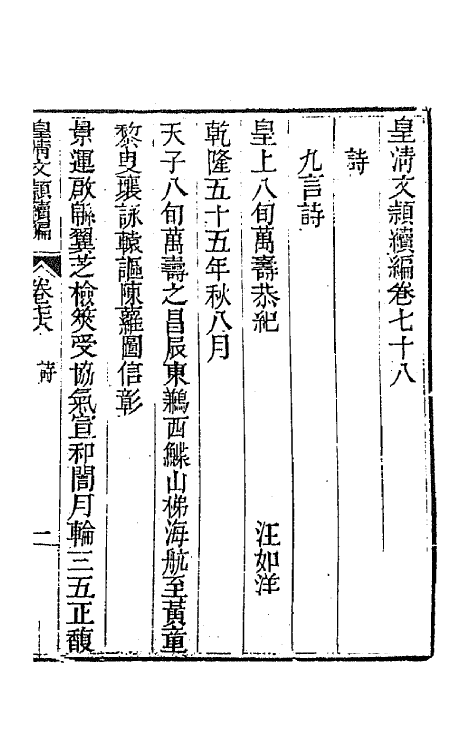 皇淸文頴續編卷七十八
詩
九言詩
皇上八旬萬壽恭紀 汪如洋
乾隆五十五年秋八月
天子八旬萬壽之昌辰東鶼西鰈山梯海航至黃童
黎叟壤詠轅謳陳蘿圖信彰
景運啟緜翼芝檢筴受協氣宣和闓月輪三五正馥
皇淸文頴續編 卷七十八 詩 一